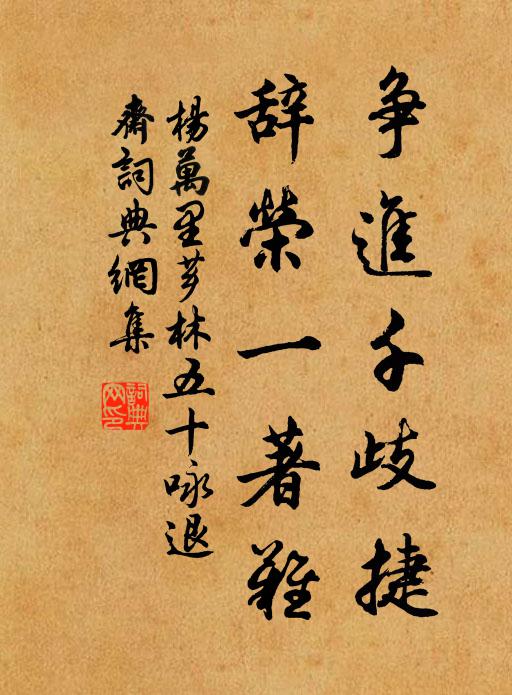 争進千歧捷
辞榮一著難
楊萬里芗林五十咏退
齋詞典網集
詞典网印